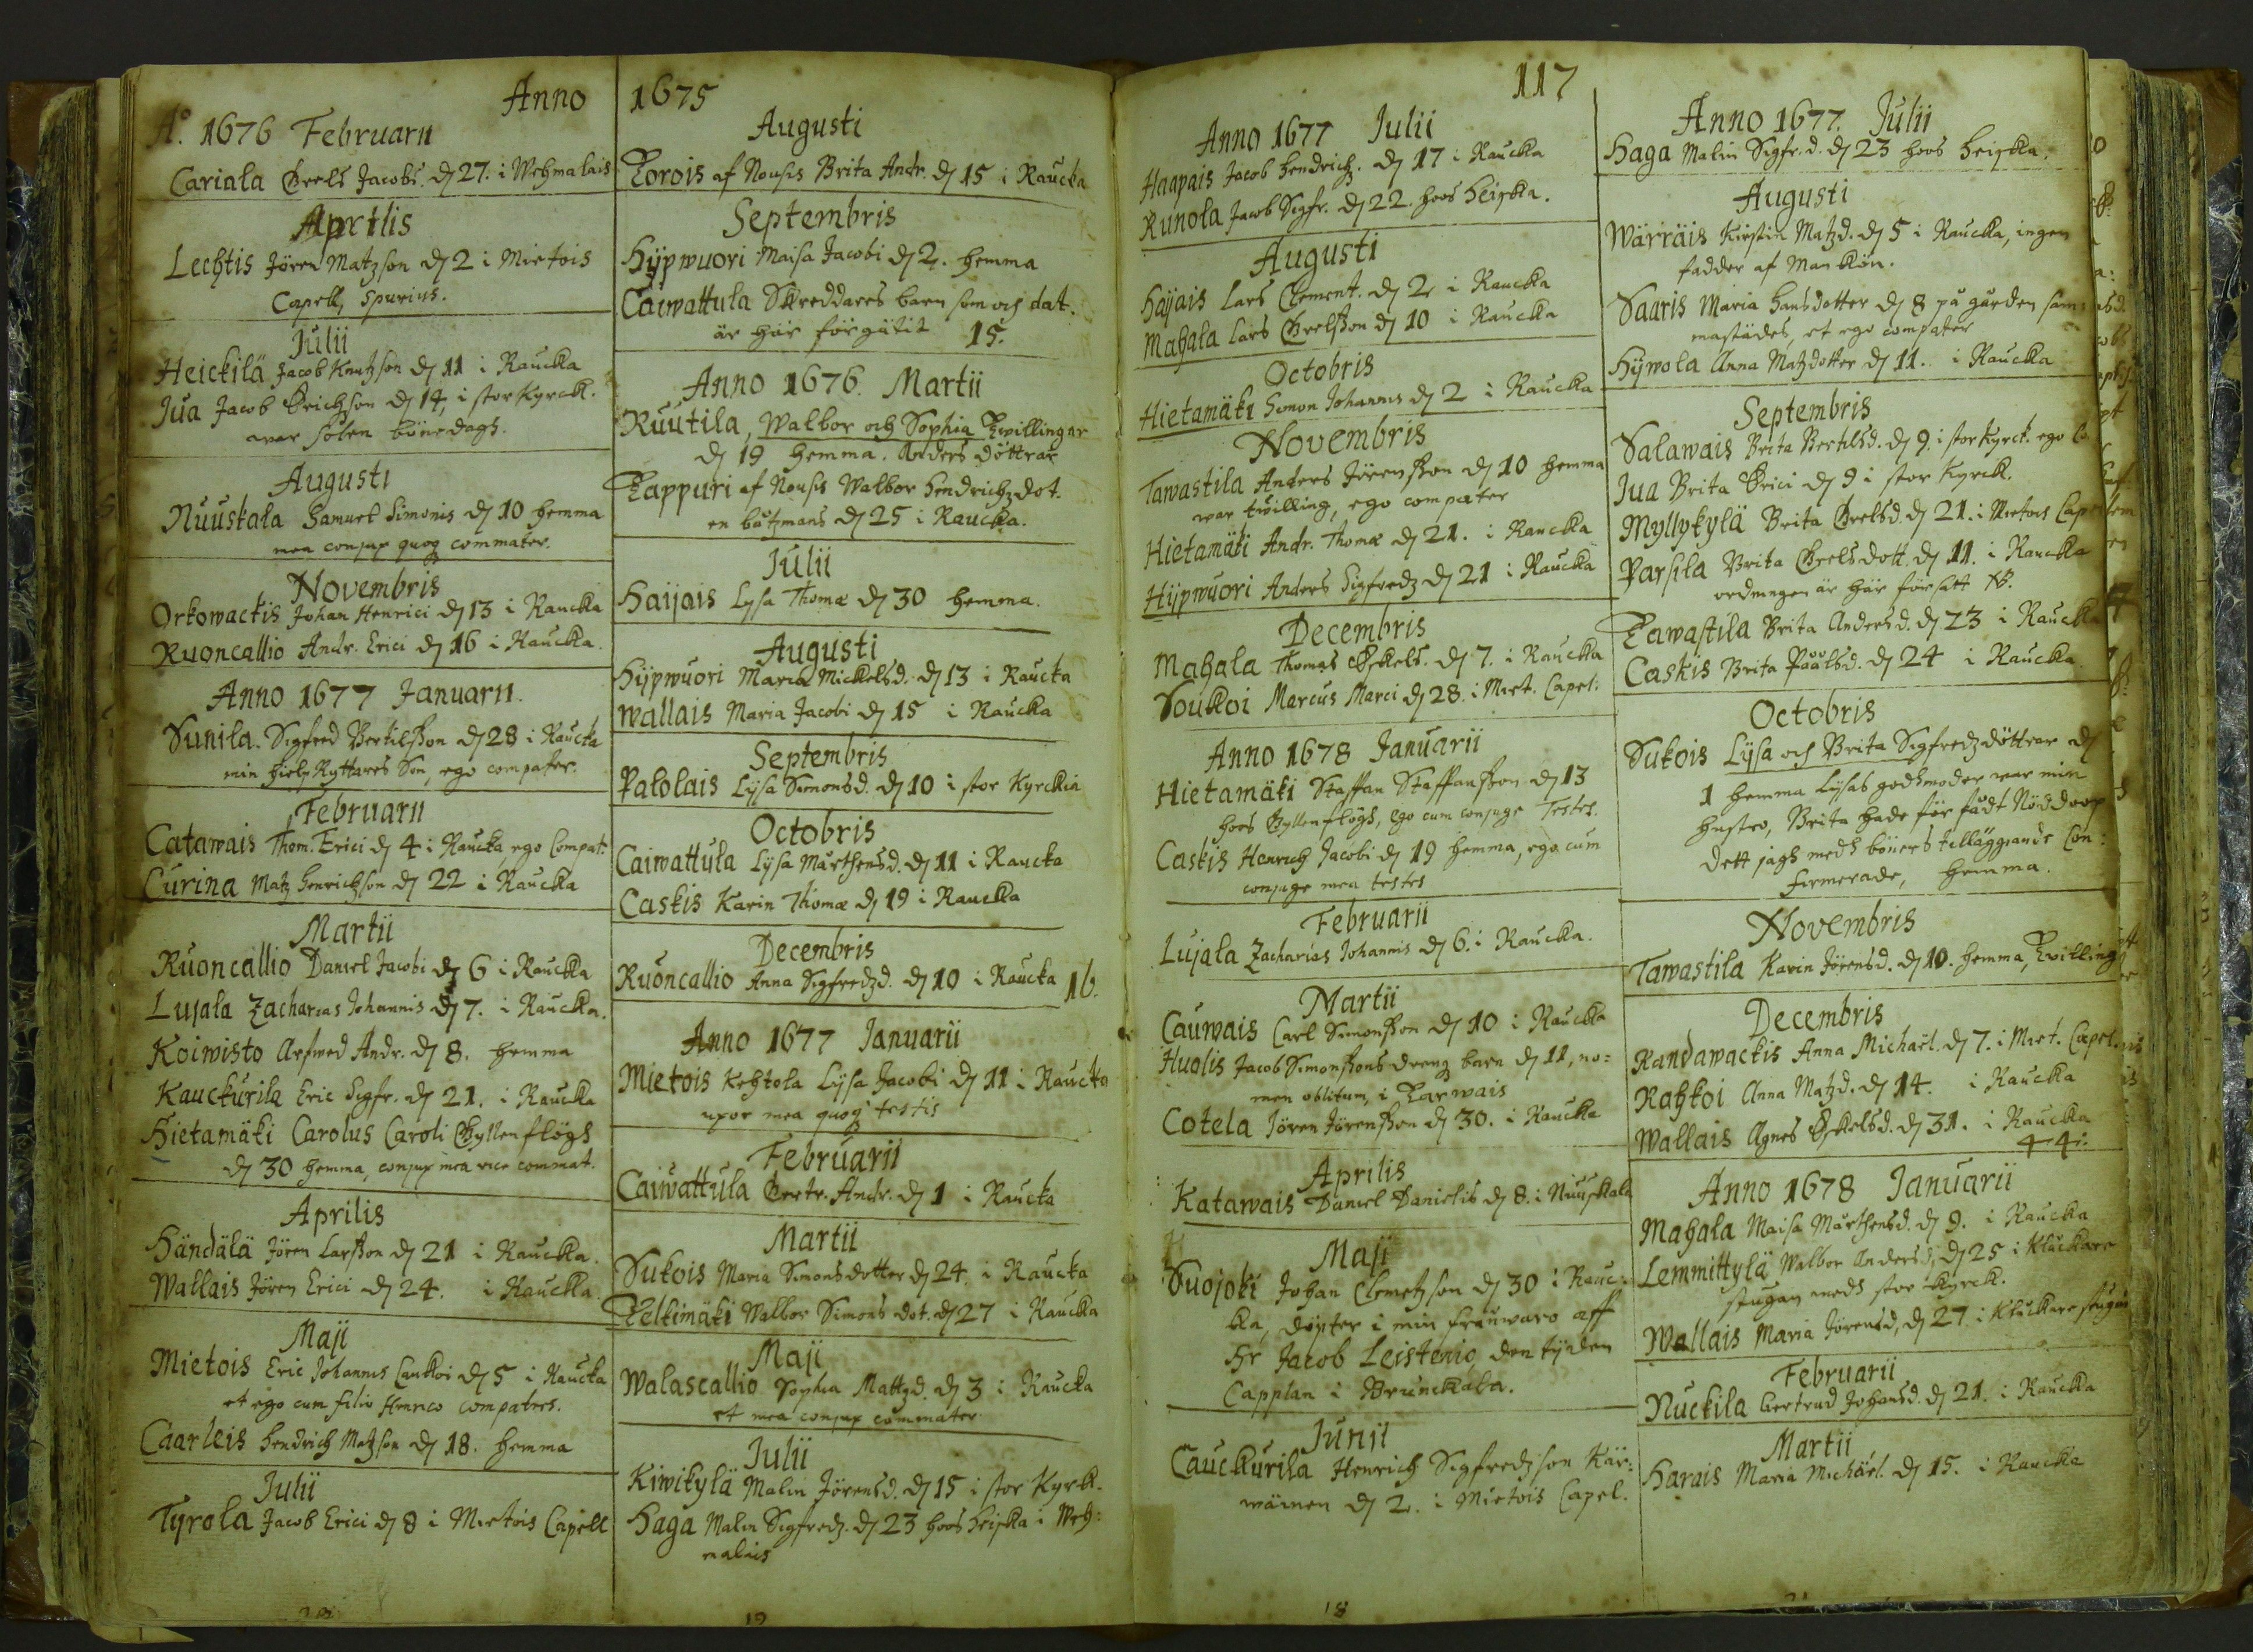 Anno
Ao. 1676 Februarii
Cariala Greels Jacobs. d 27. i Wehmalais
Aprilis
Lechtis Jören Matzson d 2 i Mietois
Capell, Spurius.
Julii
Heickilä Jacob Knutzson d 11 i Raucka
Jua Jacob Erichson d 14, i stor Kyrck.
war solen bönedagh.
Augusti
Nuuskala Samuel Simonis d 10 hemma
mea conjux quoq commater.
Novembris
Orkowackis Johan Henrici d 13 i Raucka
Ruoncallio Andr. Erici d 16 i Raucka.
Anno 1677 Januarii.
Sunila. Sigfred Bertilsson d 28 i Raucka
min hielp Ryttares Son, ego compater.
Februarii
Catawais Thom. Erici d 4 i Raucka, ego Compat:
Curina Matz Henrichson d 22 i Raucka
Martii
Ruoncallio Daniel Jacobi d 6 i Raucka
Lujala Zacharias Johannis d 7. i Raucka.
Koiwisto Arfwed Andr. d 8. hemma
Kauckurila Eric Sigfr. d 21. i Raucka
Hietamäki Carolus Caroli Gyllenflögh
d 30 hemma, conjux mea vice commat.
Aprilis
Händälä Jören Larsson d 21 i Raucka.
Wallais Jören Erici d 24. i Raucka.
Maji
Mietois Eric Johannis Laukoi d 5 i Raucka
et ego cum filio Henrico compatres.
Caarleis Hendrich Matzson d 18. hemma
Julii
Tyrola Jacob Erici d 8 i Mietois Capell
1675
Augusti
Torois af Nousis Brita Andr. d 15 i Raucka
Septembris
Hypwuori Maisa Jacobi d 2. hemma
Caiwattula Skreddares barn som och dat.
är här förgätit 15.
Anno 1676. Martii
Ruutila, Walbor och Sophia Twillingar
d 19 hemma. Anders döttrar
Tappuri af Nousis Walbor Hendrichzdot.
en båtzmans d 25 i Raucka.
Julii
Haijais Lysa Thomæ d 30 hemma.
Augusti
Hypwuori Maria Mickelsd. d 13 i Raucka
Wallais Maria Jacobi d 15 i Raucka
Septembris
Palolais Lysa Simonsd. d 10 i stor Kyrckia
Octobris
Caiwattula Lysa Mårthensd. d 11 i Raucka
Caskis Karin Thomæ d 19 i Raucka
Decembris
Ruoncallio Anna Sigfredzd. d 10 i Raucka 16.
Anno 1677 Januarii
Mietois Kehtola Lysa Jacobi d 11 i Raucka
uxor mea quoq testis
Februarii
Caiwattula Gertr. Andr. d 1 i Raucka
Martii
Sukois Maria Simonsdotter d 24. i Raucka
Telkimäki Walbor Simons dot. d 27 i Raucka
Maji
Walascallio Sophia Mattzd. d 3 i Raucka
et mea conjux commater
Julii
Kiwikylä Malin Jörensd. d 15 i stor Kyrk.
Haga Malin Sigfredz. d 23 hoos Heiskka i Weh:
malais
117
Anno 1677 Julii
Haapais Jacob Hendrichz. d 17 i Raucka
Runola Jacob Sigfr. d 22. hoos Heiskka.
Augusti
Haijais Lars Clement. d 2 i Raucka
Mahala Lars Greelsson d 10 i Raucka
Octobris
Hietamäki Simon Johannis d 2 i Raucka
Novembris
Tawastila Anders Jörensson d 10 hemma
war twilling, ego compater
Hietamäki Andr. Thomæ d 21. i Raucka
Hypwuori Anders Sigfredz d 21 i Raucka
Decembris
Mahala Thomas Eskels. d 7. i Raucka
Soukoi Marcus Marci d 28. i Miet. Capel.
Anno 1678 Januarii
Hietamäki Staffan Staffansson d 13
hoos Gyllenflögh, ego cum conjuge Testes.
Caskis Henrich Jacobi d 19 hemma, ego cum
conjuge mea testes
Februarii
Lujala Zacharias Johannis d 6. i Raucka.
Martii
Cauwais Carl Simonsson d 10 i Raucka
Huolis Jacob Simonssons drengz barn d 11, no=
men oblitum, i Tarwais
Cotela Jören Jörensson d 30. i Raucka
Aprilis
Katawais Daniel Danielis d 8. i Nuuskala
Maji
Suojoki Johan Clemetzson d 30 i Rauc:
ka, döpter i min frånwaro aff
Hr Jacob Leistenio, den tijden
Capplan i Brunckala.
Junii
Cauckurila Henrich Sigfredzson Kär:
wäinen d 2. i Mietois Capel.
Anno 1677. Julii
Haga Malin Sigfr.d. d 23 hoos Heiskka.
Augusti
Wärräis Kirstin Matzd. d 5 i Raucka, ingen
fadder af Man kön.
Saaris Maria Hansdotter d 8 på gården sam:
mastädes, et ego compater
Hywola Anna Matzdotter d 11. i Raucka
Septembris
Salawais Brita Bertilsd. d 9. i stor Kyrck. ego
Jua Brita Erici d 9 i stor Kyrck.
Myllykylä Brita Greelsd. d 21. i Mietois Cape
Parsila Brita Greelsdott. d 11. i Raucka
ordningen är här försatt NB.
Tawastila Brita Andersd. d 23 i Raucka
Caskis Brita Påålsd. d 24 i Raucka.
Octobris
Sukois Lysa och Brita Sigfredzdöttrar d
1 hemma Lysas gudhmoder war min
hustro, Brita hade för fådt Nöddoop
Dett jagh medh böners tilläggiande Con:
firmerade, hemma.
Novembris
Tawastila Karin Jörensd. d 10. hemma, Twilling
Decembris
Randawackis Anna Michaël. d 7. i Miet. Capel.
Rahkoi Anna Matzd. d 14. i Raucka
Wallais Agnes Eskelsd. d 31. i Raucka
44.
Anno 1678 Januarii
Mahala Maisa Mårthensd. d 9. i Raucka
Lemmittylä Walbor Andersd, d 25 i Kluckare
stugan medh stor Kyrck.
Wallais Maria Jörensd, d 27 i Kluckare stugan
Februarii
Nuckila Gertrud Johansd. d 21. i Raucka
Martii
Harais Maria Michäel. d 15. i Raucka
18